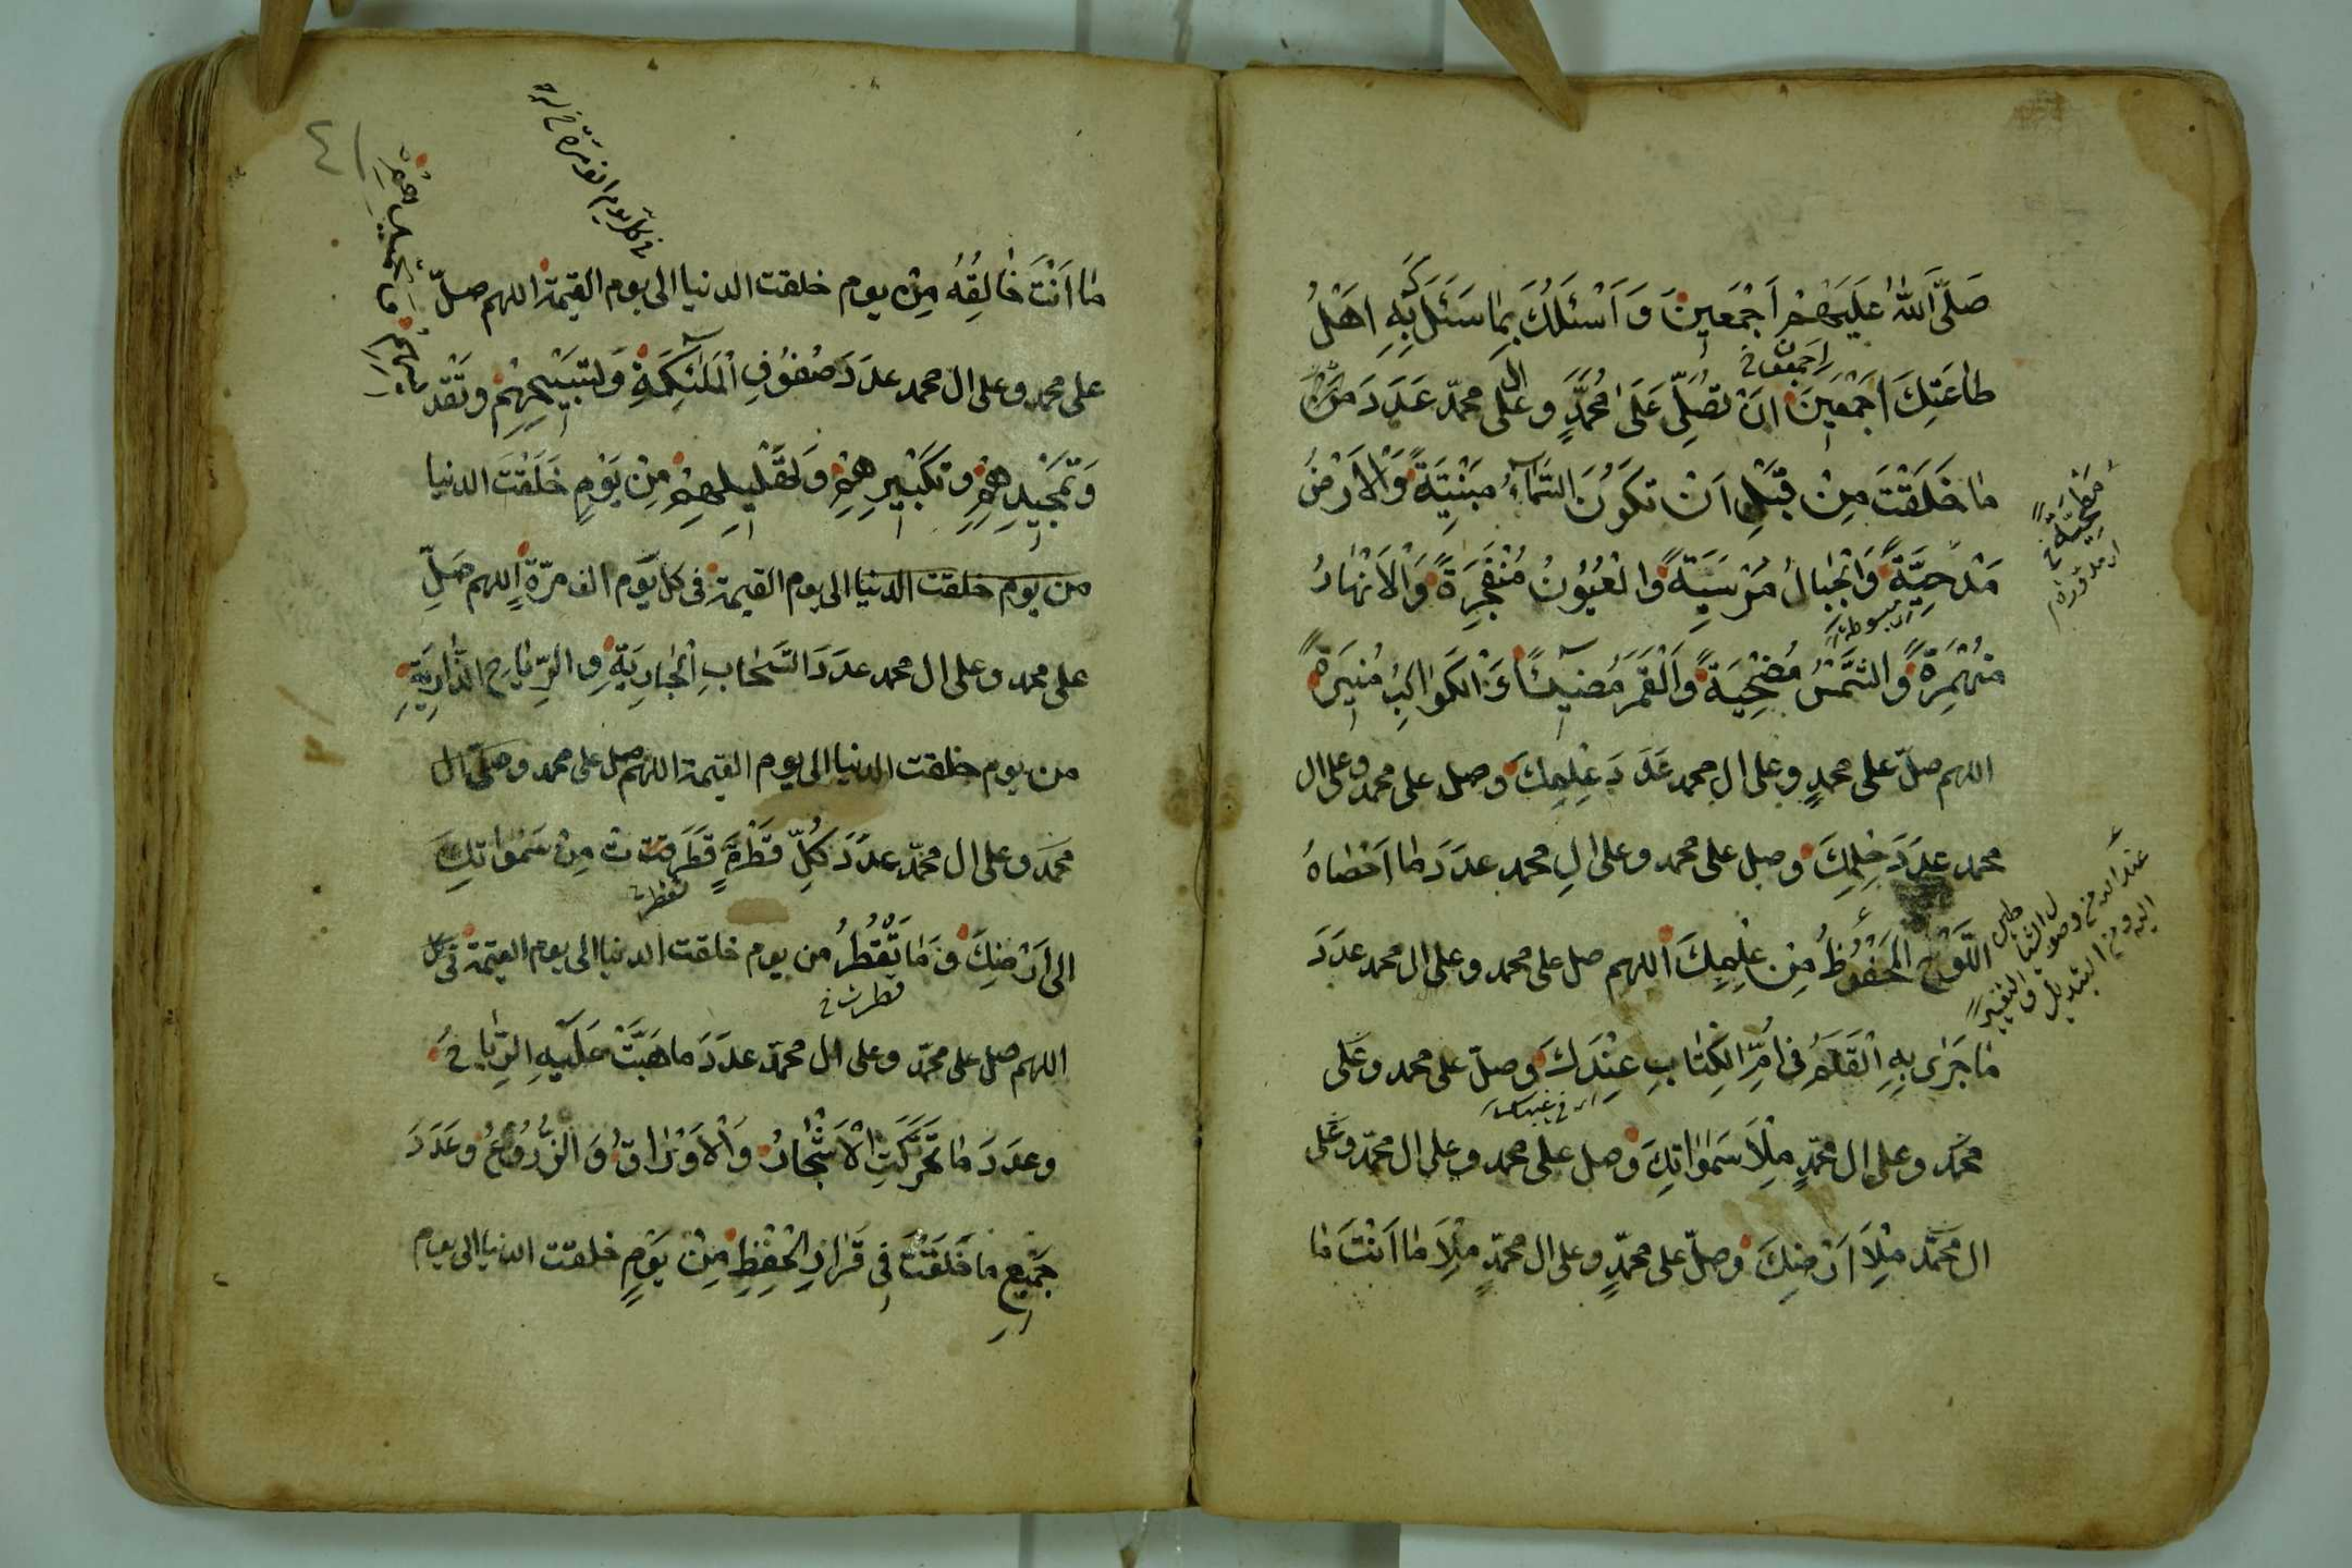 صَلَّى اللهُ عَلَيْهِمْ اَجْمَعِينَ وَ اَسْئَلُكَ بِمَا سَئَلَكَ بِهِ اَهْلُ
طَاعَتِكَ اَجْمَعِينَ اَنْ تُصَلِّىَ عَلَى مُحَمَّدٍ وَ عَلَى ال محمّد عَدَدَ
مَا خَلَقْتَ مِنْ قَبْلِ اَنْ تَكُونَ السَّمَاءُ مَبْنِيَّةً وَالْاَرْضُ
مَدْحِيَّةً وَالْجِبَالُ مُرْسَيَةً وَالْعُيُونُ مُنْفَجِرَةً وَالْاَنْهَارُ
مُنْهَمِرَةً وَالشَّمْسُ مُضْحِيَةً وَالْقَمَرُ مُضِيئًا وَالْكَوَاكِبُ مُنِيرَةً
اللهم صلّ على محمدٍ وعلى ال محمد عَدَدَ عِلْمِكَ وصل على محمد وعلى ال
محمد عدَدَ حِلْمِكَ وصل على محمد وعلى الِ محمد عدَدَ مَا اَحْصَاهُ
اللَّوْحُ الْمَحْفُوظُ مِنْ عِلْمِكَ اللهم صل على محمد وعلى ال محمد عدَدَ
مَا جَرَى بِهِ الْقَلَمُ فى اُمِّ الْكِتَابِ عِنْدَكَ وصلّ على محمد وعَلى
محمّد وعلى ال محمّدٍ مِلْاَ سَمٰوَاتِكَ وصل على محمد وعلى ال محمّد وعَلى
ال محمَّد مِلْاَ اَرْضِكَ وصلّ على محمّدٍ وعلى ال محمّدٍ مِلْاَ مَا اَنْتَ مَا
اجمعون خ
مَطْحِيَّةً خ
مبسوطة
٤١
فى كل يوم الف مرّة
مَا اَنْتَ خَالِقُهُ مِنْ يوم خلقت الدنيا الى يوم القيمة اللهم صلّ
على محمد وعلى ال محمد عدَدَ صُفُوفِ الْمَلٰئِكَةِ وَتَسْبِيحِهِمْ وتَقْد
وَتَمْجِيدِهِمْ وتَكْبِيرِهِمْ وَتَهْلِيلِهِمْ مِنْ يَوْمِ خَلَقْتَ الدنيا
من يوم خلقت الدنيا الى يوم القيمة فى كل يَوم الف مرّة اللهم صَلِّ
على محمد وعلى ال محمد عدَدَ السَّحَابِ الْجَارِيَةِ وَالرِّيَاحِ الذَّارِيَةِ
من يوم خلقت الدنيا الى يوم القيمة اللهم صل على محمد وصَلّ ال
محمّد وعلى ال محمّد عدَدَ كُلِّ قَطْرَةٍ قَطَرَتْ مِنْ سَمٰوَاتِكَ
الى اَرْضِكَ وَمَا تَقْطُرُ من يوم خلقت الدنيا الى يوم القيمة فى كل
قطرت خ
اللهم صل على محمّد وعلى ال محمّد عدَدَ ما هَبَّتْ عَلَيْهِ الرِّيَاحُ
وعدَدَ مَا تَحَرَّكَتِ الْاَشْجَارُ وَالْاَوْرَاقُ وَالزُّرُوعُ وعَدَدَ
جَمِيعِ مَا خَلَقْتَ فِى قَرَارِ الْحِفْظِ مِنْ يَوْمِ خلقت الدنيا الى يوم